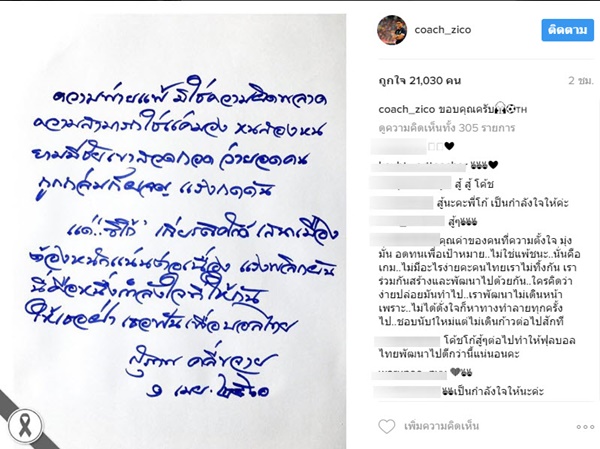 ความพ่ายแพ้ มิใช่ความผิดพลาด
ความสามารถใช่แค่มอง หนสองหน
ยามมีชัยเขาสวดกอด ว่ายอดคน
ถูกถล่ม แรงกดดัน
แด่..“ซิโก้” เกียรติศักดิ์ เสนาเมือง
ต้องหนักแน่นต่อเนื่อง แรงพลิกผัน
นี่คือหนึ่งกำลังใจที่ให้กัน
ให้เธอฝ่า เธอฟัน เพื่อบอลไทย
สุภาพ คลี่ขจาย
๑ เมย. ๒๕๖๐
coach_zico
ติดตาม
ถูกใจ 21,030 คน
2 ชม.
coach_zico ขอบคุณครับ🙏⚽TH
ดูความคิดเห็นทั้ง 305 รายการ
🖤
สู้ สู้ โค้ช
สู้นะคะพี่โก้ เป็นกำลังใจให้ค่ะ
สู้ๆ
คุณค่าของคนที่ความตั้งใจ มุ่ง
มั่น อดทนเพื่อเป้าหมาย..ไม่ใช่แพ้ชนะ..นั่นคือ
เกม..ไม่มีอะไรง่ายดะคนไทยเราไม่ทิ้งกัน เรา
ร่วมกันสร้างและพัฒนาไปด้วยกัน..ใครคิดว่า
ง่ายปล่อยมันทำไป...เราพัฒนาไม่เดินหน้า
เพราะ..ไม่ได้ดั่งใจก็หาทางทำลายทุกครั้ง
ไป...ชอบนับ1ใหม่แต่ไม่เดินก้าวต่อไปสักที
โค้ชโก้สู้ๆต่อไปทำให้ฟุตบอล
ไทยพัฒนาไปดีกว่านี้แน่นอนคะ
เป็นกำลังใจให้นะค่ะ
เพิ่มความคิดเห็น